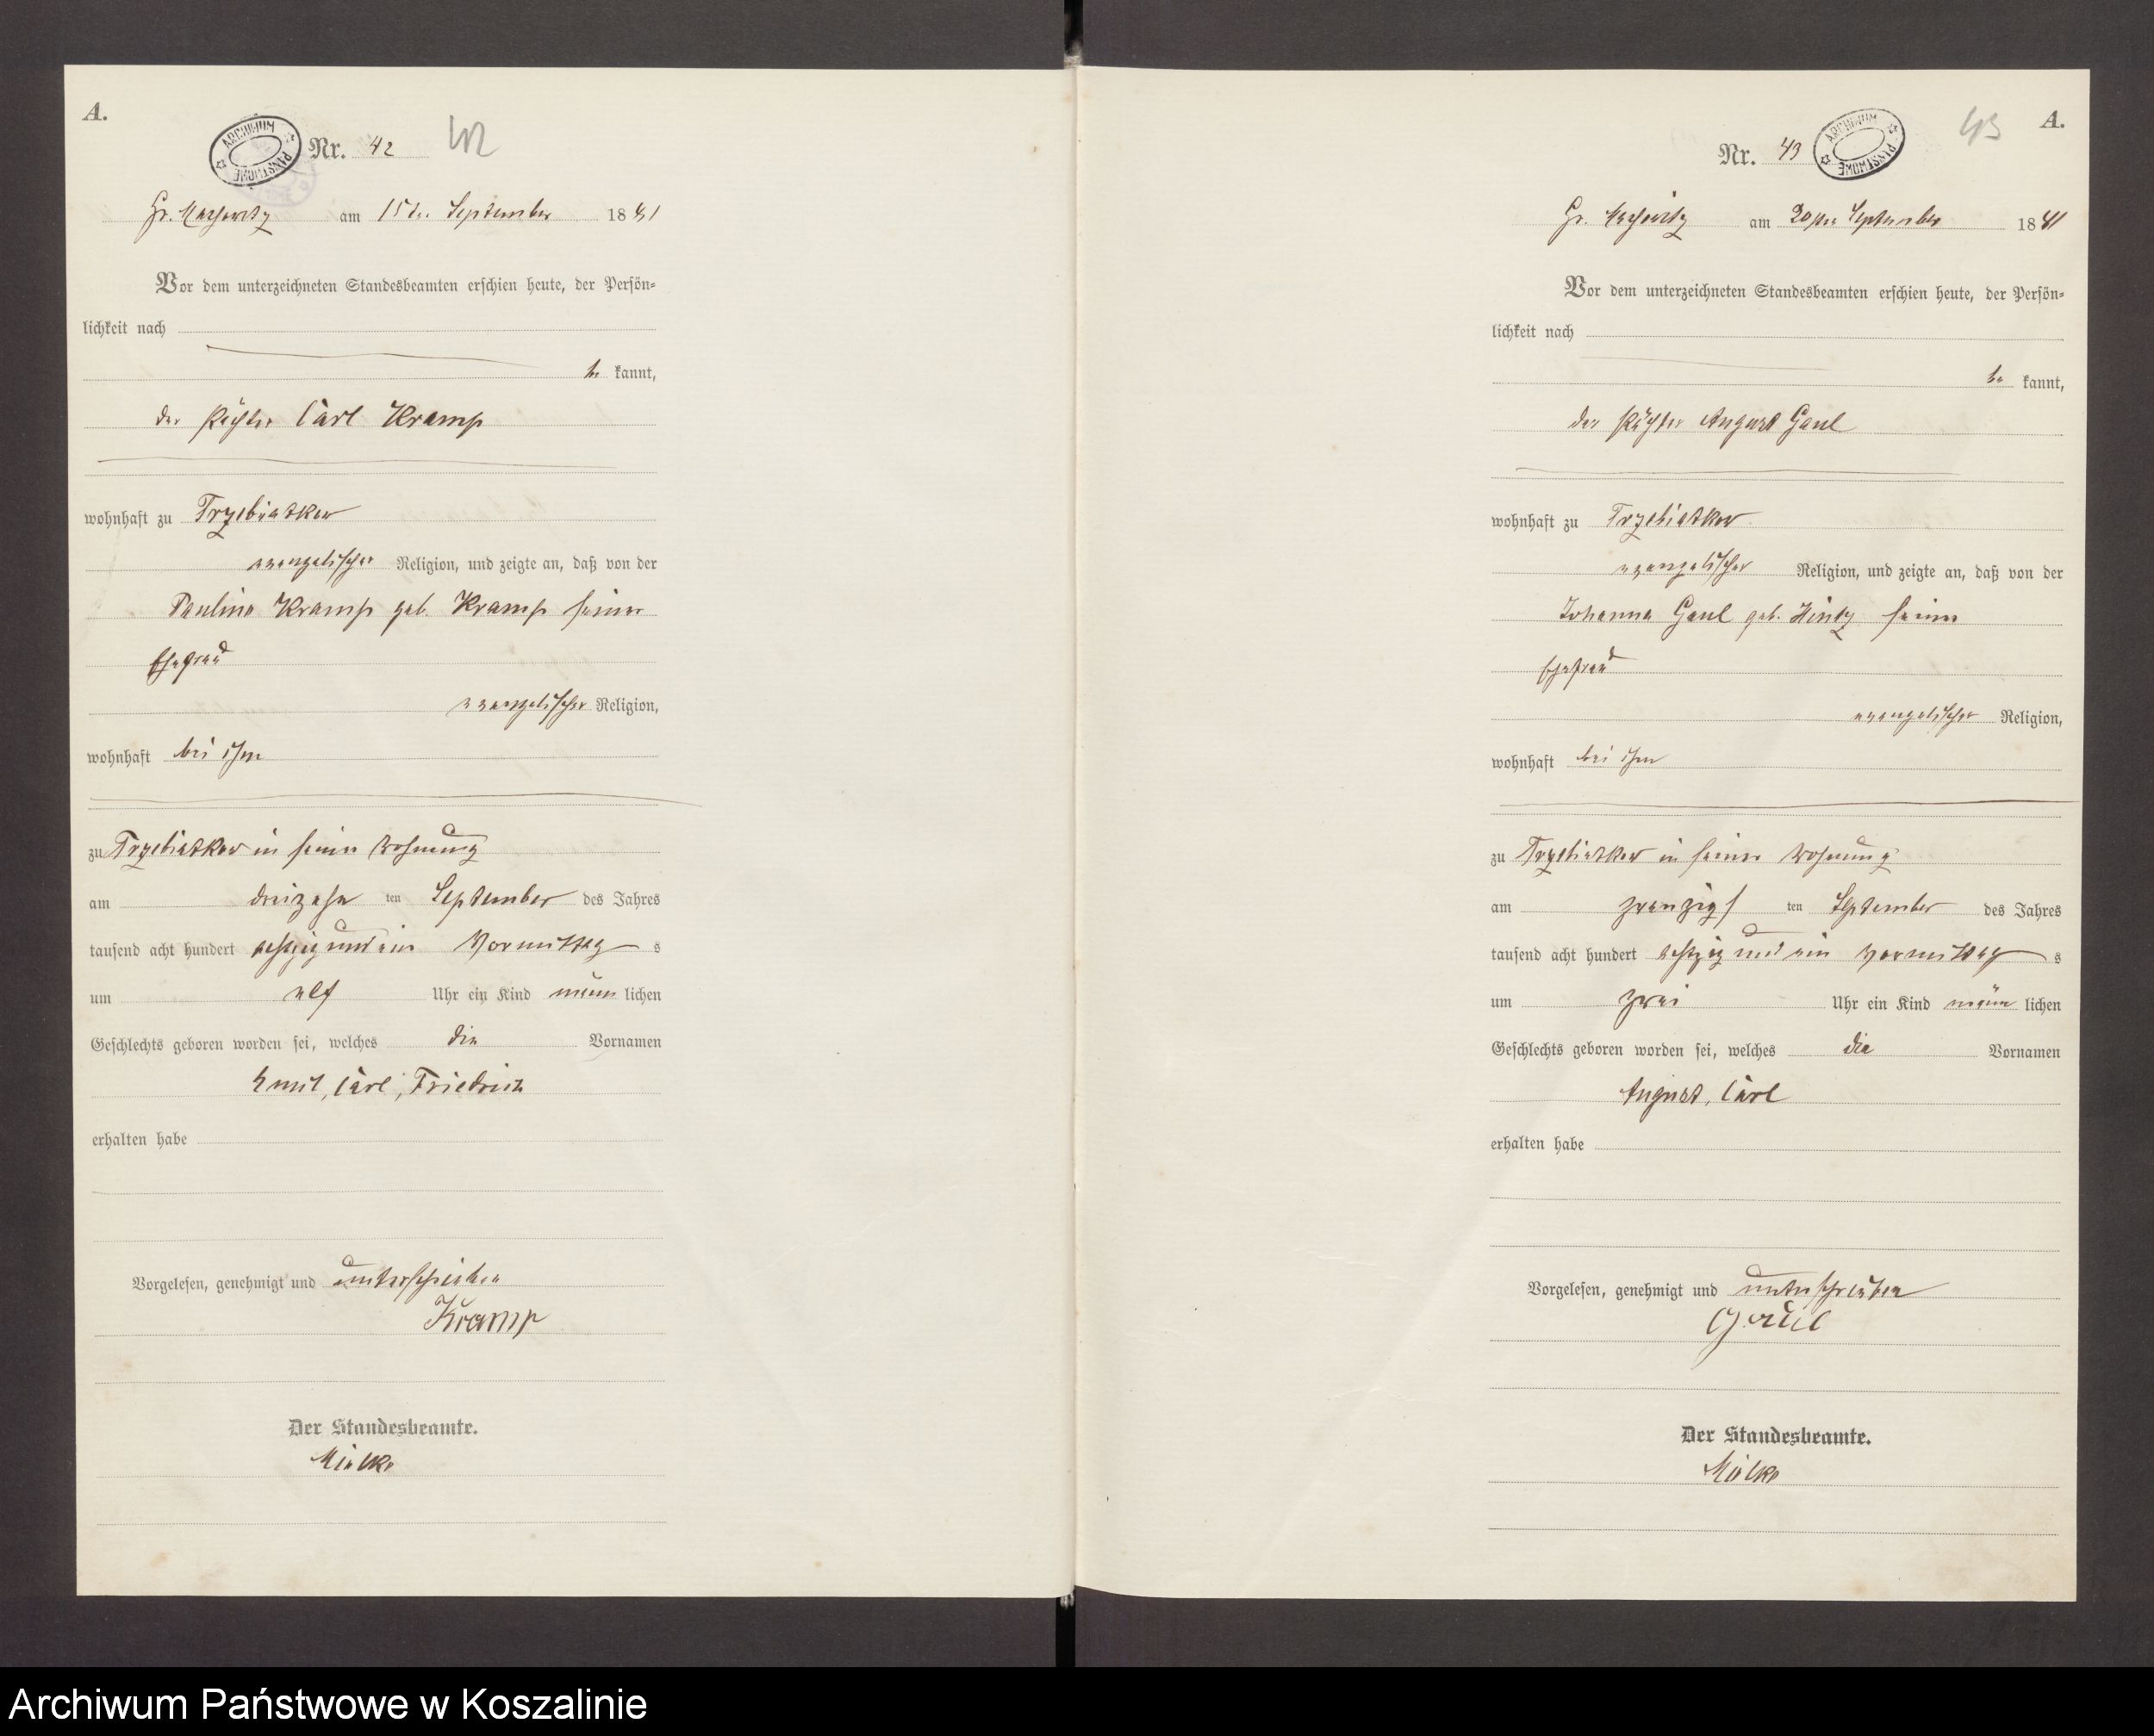 A.
ARCHIWUM PAŃSTWOWE
Nr. 42
42
Gr. Massowitz am 15ten September 1881
Vor dem unterzeichneten Standesbeamten erschien heute, der Persön=
lichkeit nach
be kannt,
der Pächter Carl Kramp
wohnhaft zu Trzebiatkow
evangelischer Religion, und zeigte an, daß von der
Pauline Kramp geb. Kramp seiner
Ehefrau
evangelischer Religion,
wohnhaft bei ihm
zu Trzebiatkow in seiner Wohnung
am dreizehn ten September des Jahres
tausend acht hundert achtzig und ein Vormittag s
um elf Uhr ein Kind männ lichen
Geschlechts geboren worden sei, welches die Vornamen
Emil, Carl, Friedrich
erhalten habe
Vorgelesen, genehmigt und unterschrieben
Kramp
Der Standesbeamte.
Mielke
43
A.
Nr. 43
ARCHIWUM PAŃSTWOWE
Gr. Massowitz am 20ten September 1881
Vor dem unterzeichneten Standesbeamten erschien heute, der Persön=
lichkeit nach
be kannt,
der Pächter August Gaul
wohnhaft zu Trzebiatkow
evangelischer Religion, und zeigte an, daß von der
Johanna Gaul geb. Hintz seiner
Ehefrau
evangelischer Religion,
wohnhaft bei ihm
zu Trzebiatkow in seiner Wohnung
am zwanzigs ten September des Jahres
tausend acht hundert achtzig und ein Vormittag s
um zwei Uhr ein Kind männ lichen
Geschlechts geboren worden sei, welches die Vornamen
August, Carl
erhalten habe
Vorgelesen, genehmigt und unterschrieben
Gaul
Der Standesbeamte.
Mielke
Archiwum Państwowe w Koszalinie